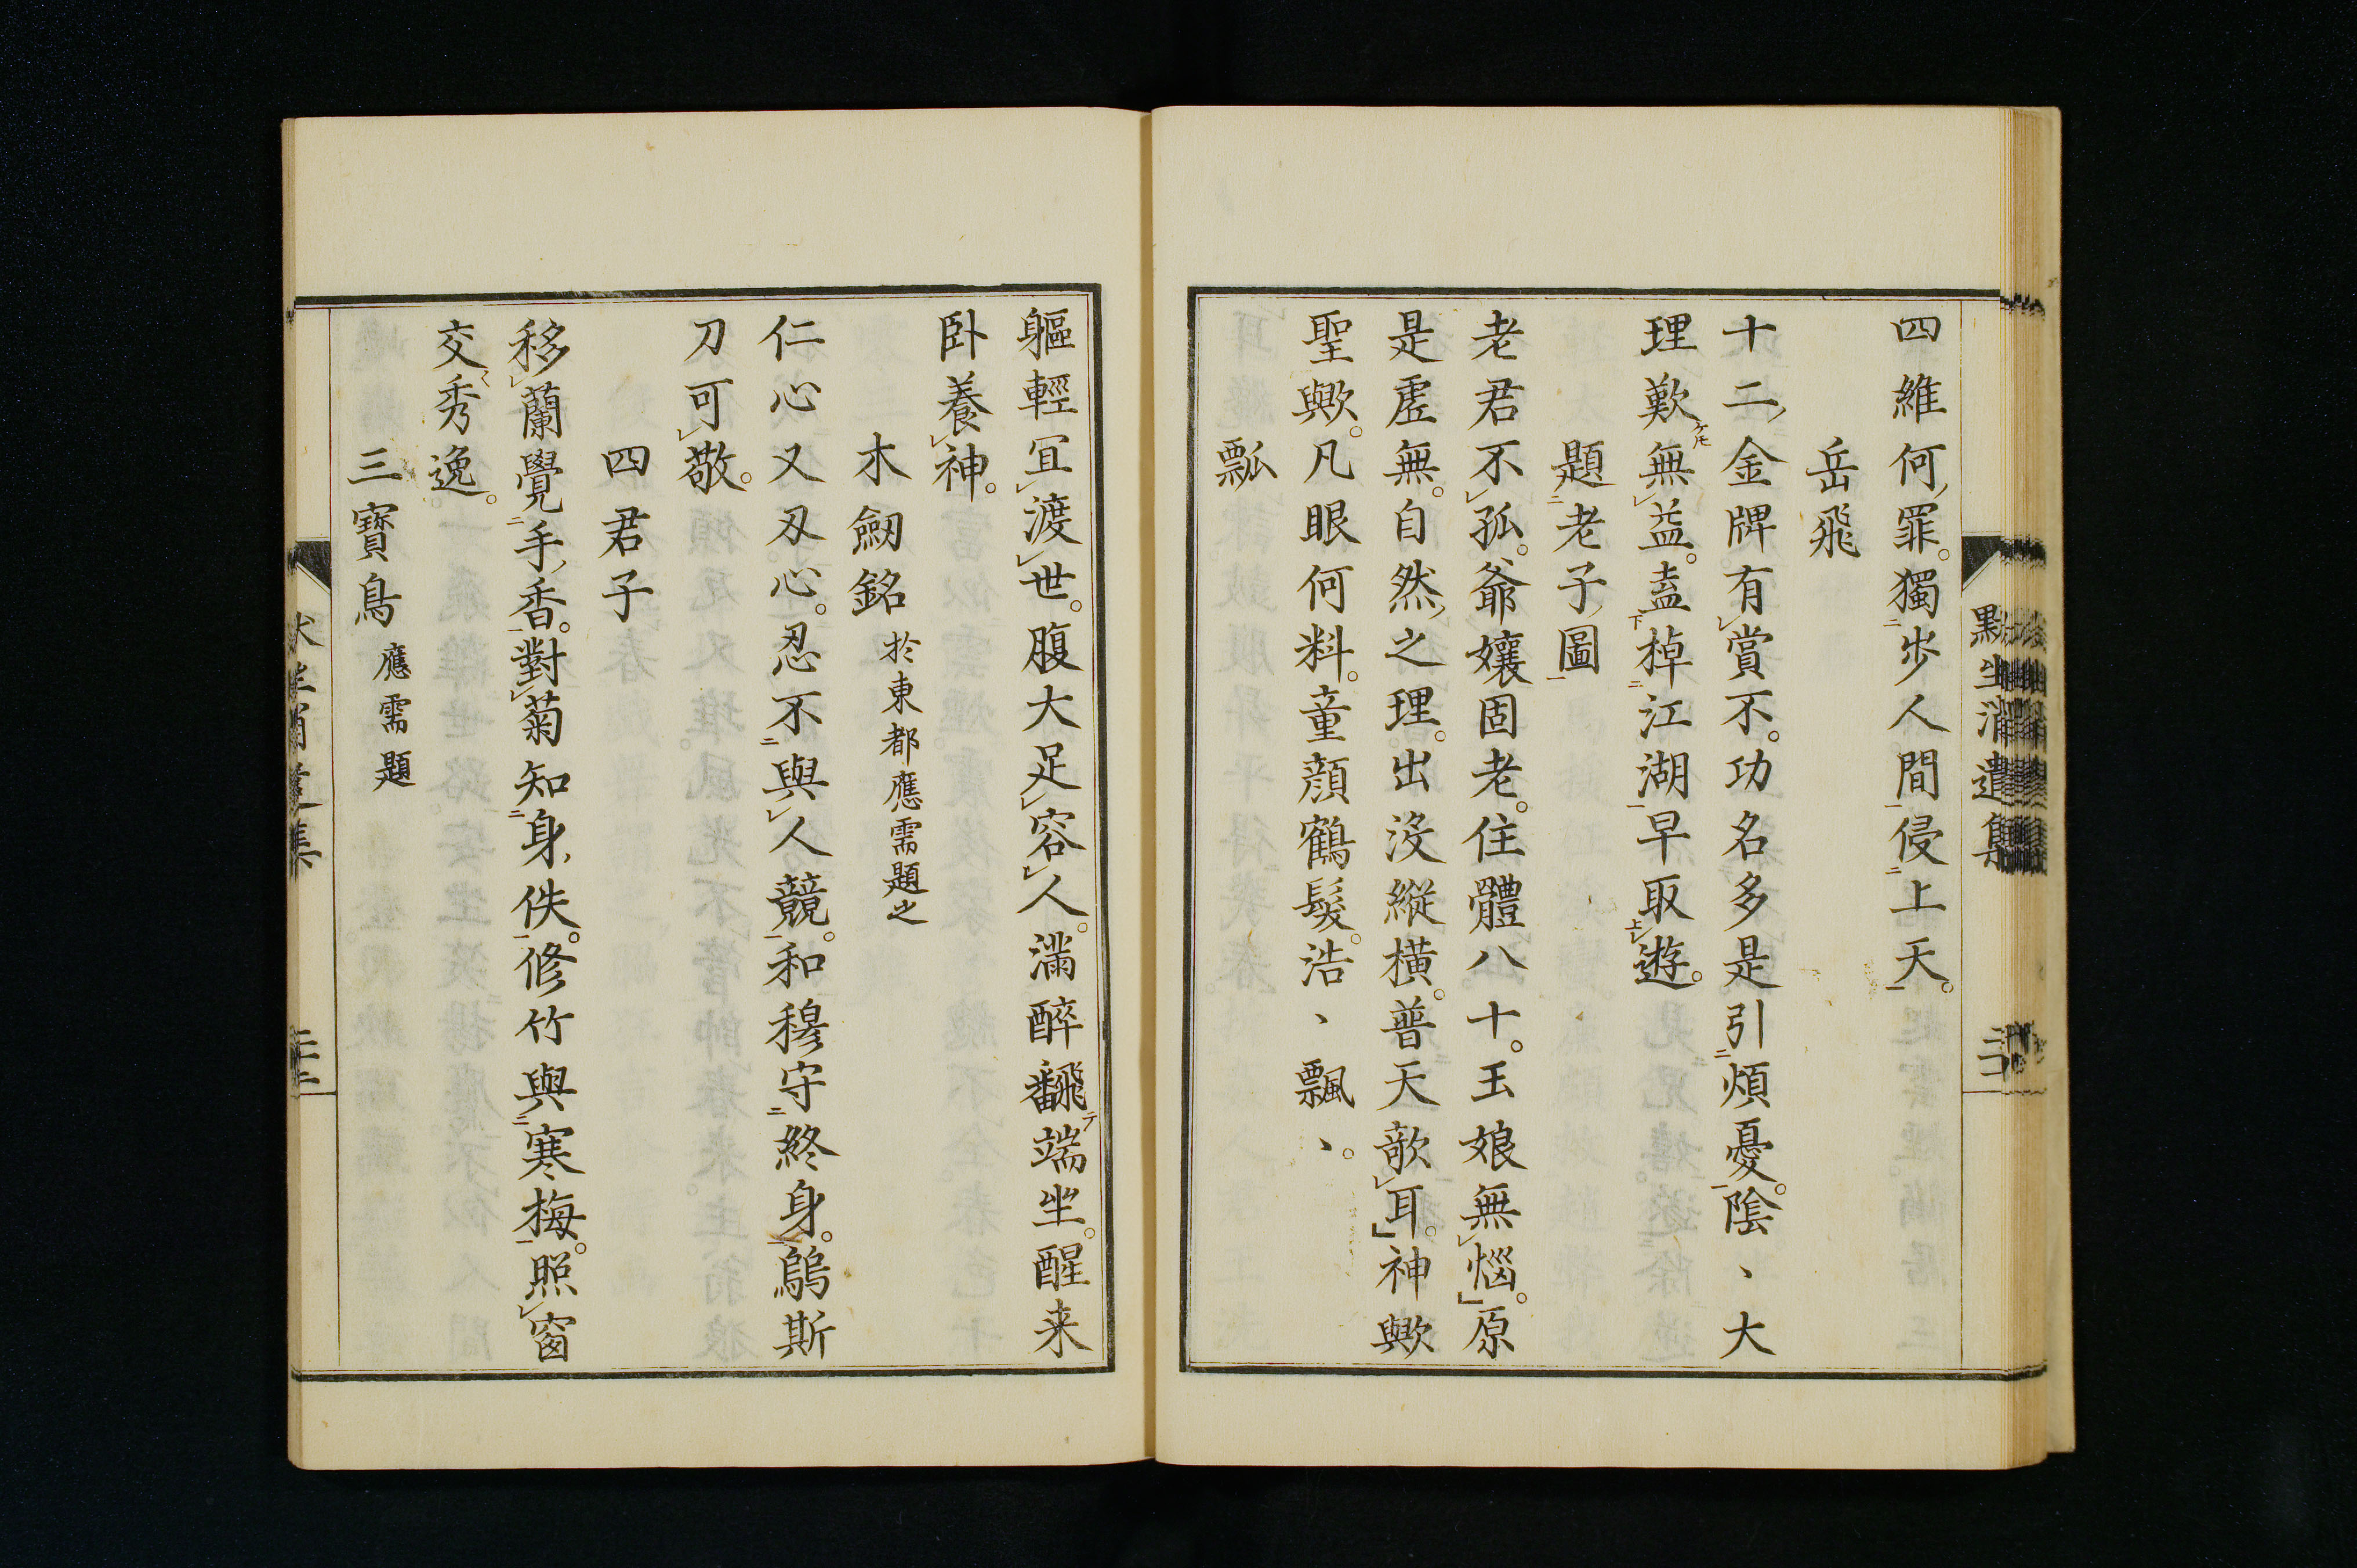 四維何罪。獨歩人間侵上天。
岳飛
十二金牌有賞不。功名多是引煩憂。陰、大
理歎無益。盍棹江湖早取遊。
題老子圖
老君不孤。爺孃固老。住體八十。玉娘無惱。」原
是虛無。自然之理。出沒縱橫。普天歆耳。」神歟
聖歟。凡眼何料。童顔鶴髮。浩、飄、。
瓢
軀輕宜渡世。腹大足容人。滿醉飜端坐。醒来
卧養神。
木劒銘 於東都應需題之
仁心又刄心。忍不與人競。和穆守終身。鷠斯
刀可敬。
四君子
移蘭覺手香。對菊知身佚。修竹與寒梅。照窗
交秀逸。
三寶鳥 應需題